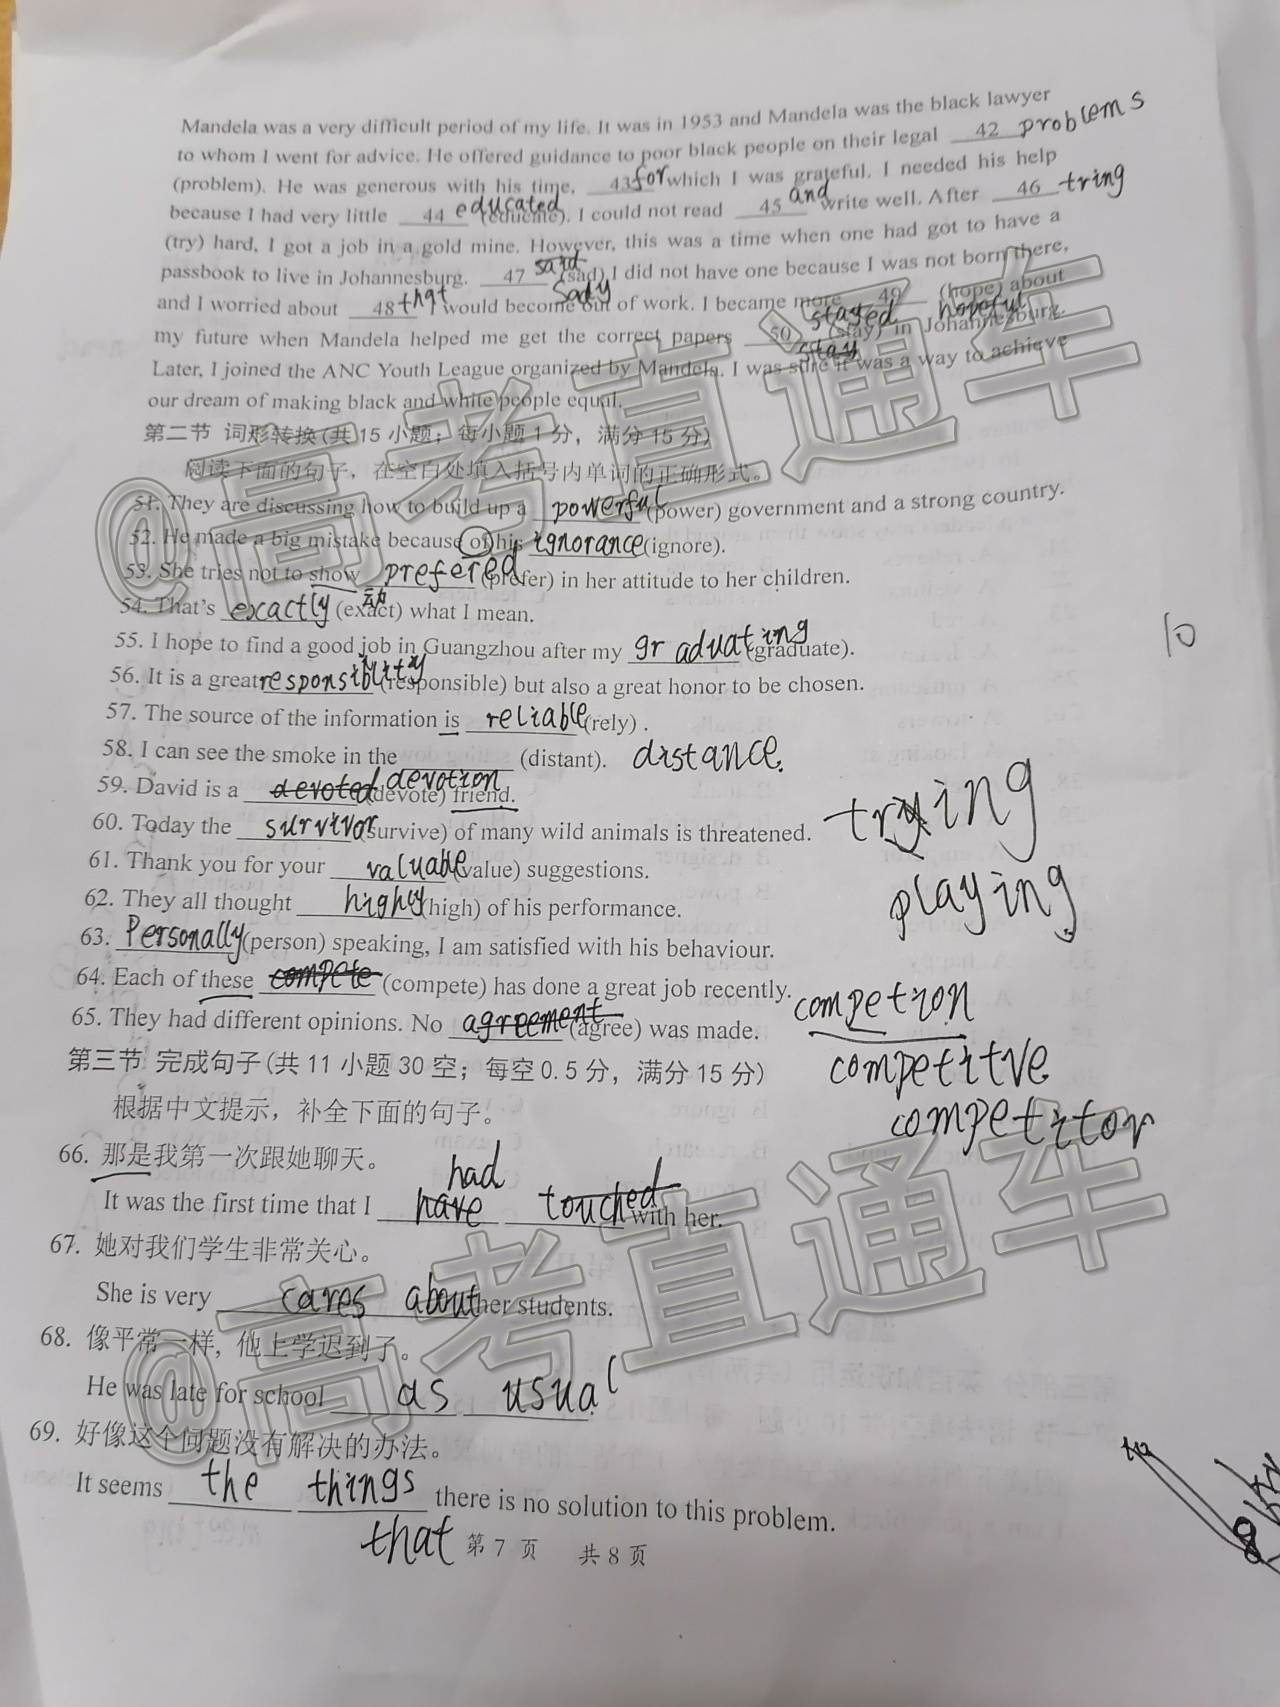 Mandela was a very difficult period of my life. It was in 1953 and Mandela was the black lawyer
to whom I went for advice. He offered guidance to poor black people on their legal 42 problems
(problem). He was generous with his time, 43 for which I was grateful. I needed his help
because I had very little 44 educated (educate). I could not read 45 and write well. After 46 tring
(try) hard, I got a job in a gold mine. However, this was a time when one had got to have a
passbook to live in Johannesburg. 47 said (sad) I did not have one because I was not born there,
sady
and I worried about 48 that I would become out of work. I became more 49 (hope) about
stayed hopeful
my future when Mandela helped me get the correct papers 50 (stay) in Johannesburg.
stay
Later, I joined the ANC Youth League organized by Mandela. I was sure it was a way to achieve
our dream of making black and white people equal.
第二节 词形转换(共15小题;每小题1分,满分15分)
阅读下面的句子,在空白处填入括号内单词的正确形式。
51. They are discussing how to build up a powerful (power) government and a strong country.
52. He made a big mistake because of his ignorance (ignore).
53. She tries not to show prefered (prefer) in her attitude to her children.
54. That's exactly (exact) what I mean.
55. I hope to find a good job in Guangzhou after my graduating (graduate).
10
56. It is a great responsiblity (responsible) but also a great honor to be chosen.
57. The source of the information is reliable (rely) .
58. I can see the smoke in the (distant). distance.
59. David is a devoted devotion (devote) friend.
60. Today the survivor (survive) of many wild animals is threatened. trying
61. Thank you for your valuable (value) suggestions.
62. They all thought highly (high) of his performance. playing
63. Personally (person) speaking, I am satisfied with his behaviour.
64. Each of these compete (compete) has done a great job recently. competion
65. They had different opinions. No agreement (agree) was made.
第三节 完成句子(共11小题30空;每空0.5分,满分15分) competitve
根据中文提示,补全下面的句子。 competitor
66. 那是我第一次跟她聊天。
had
It was the first time that I have touched with her.
67. 她对我们学生非常关心。
She is very cares about her students.
68. 像平常一样,他上学迟到了。
He was late for school as usual
69. 好像这个问题没有解决的办法。
It seems the things there is no solution to this problem.
that
第 7 页 共 8 页
@高考直通车
@高考直通车